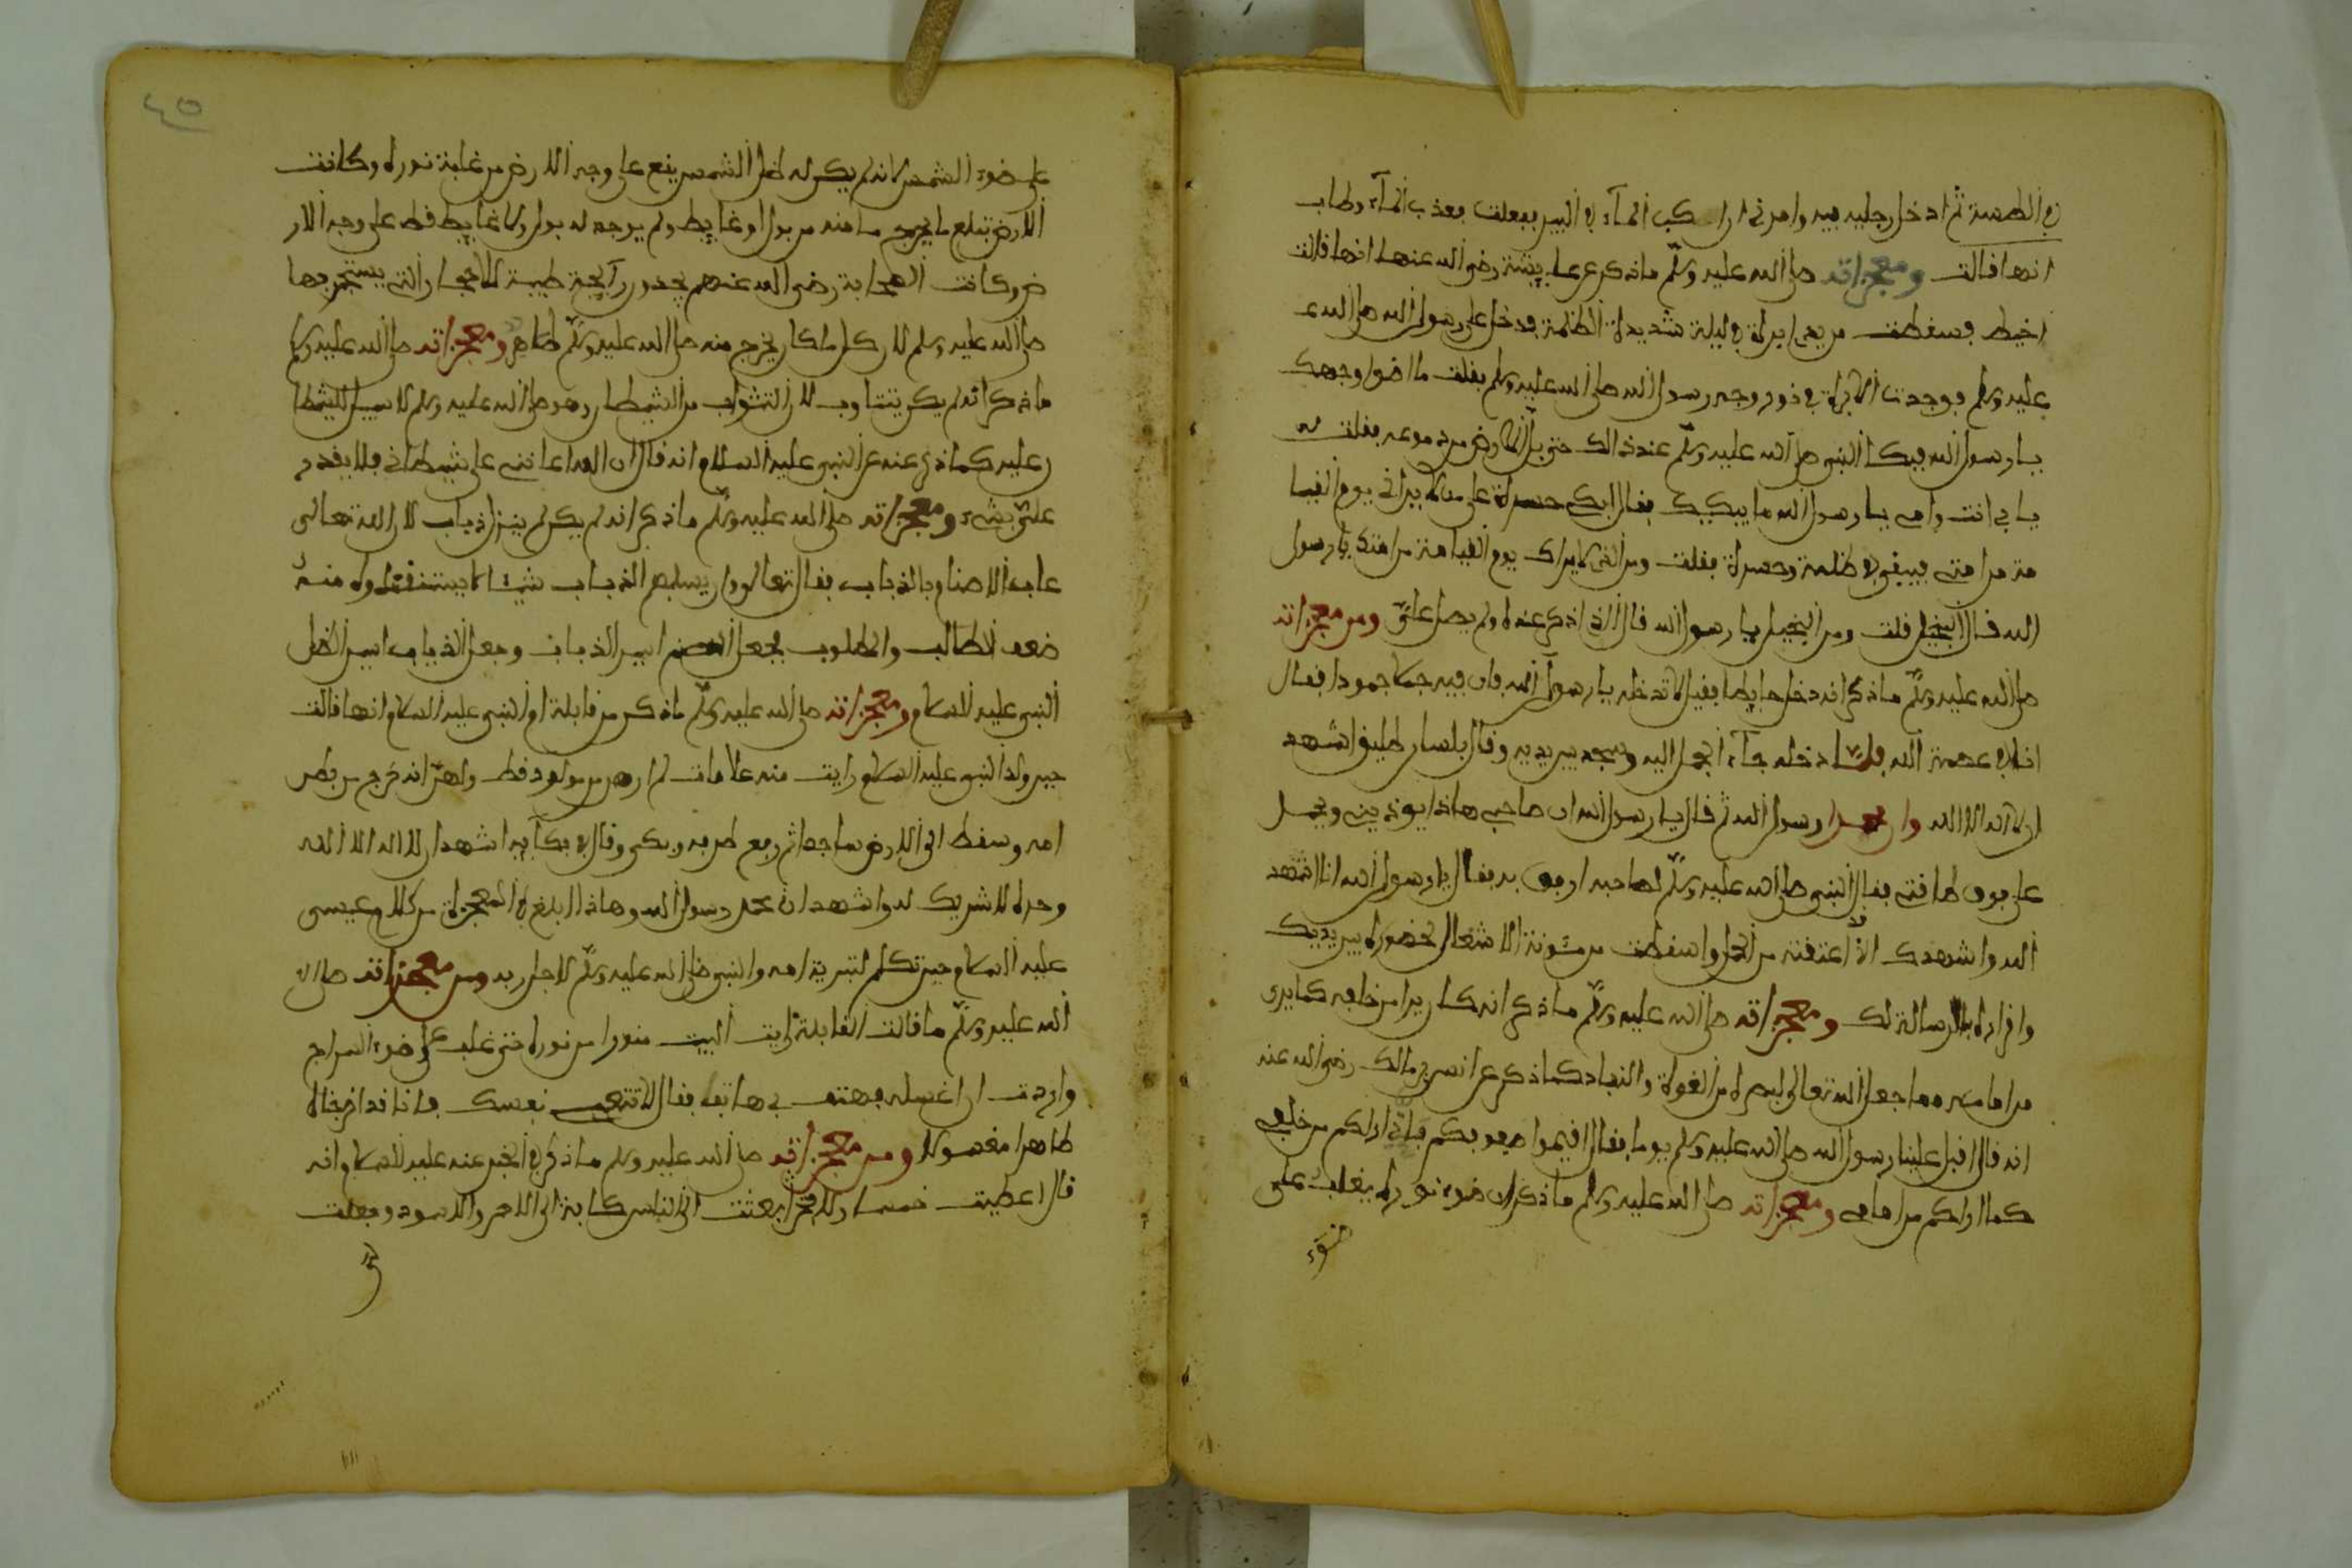 في الطهسة ثم ادخل رجليه فيه وامرني ان اكب المآء في البير ففعلت فعذب المآء وطاب
انها قالت ومعجزاته صلى الله عليه وسلم ماذكر عن عايشة رضي الله عنها انها قالت
اخيط فسقطت من يدي ابرة في ليلة شديدة الظلمة فدخل على رسول الله صلى الله ع
عليه وسلم فوجدت الابرة في نور وجه رسول الله صلى الله عليه وسلم فقلت ما اضوا وجهك
يا رسول الله فبكا النبي صلى الله عليه وسلم عند ذالك حتى بل الارض من دموعه فقلت له
بابي انت وامي يا رسول الله ما يبكيك فقال ابكي حسرة على من لا يراني يوم القيا
مة من امتي فيبقى في ظلمة وحسرة فقلت ومن الذي لا يراك يوم القيامة من امتك يا رسول
الله قال البخيل قلت ومن البخيل يا رسول الله قال الذي اذكر عنده ولم يصل علي ومن معجزاته
صلى الله عليه وسلم ما ذكر انه دخل حايطا فقيل لا تدخله يا رسول الله فان فيه جملا جمودا فقال
انا في عصمة الله فلما دخله جآء الجمل اليه وسجد بين يديه وقال بلسان طليق اشهد
ان لا اله الا الله وان محمدا رسول الله ثم قال يا رسول الله ان صاحبي هاذا يوذيني ويحمل
على فوق طاقتي فقال النبي صلى الله عليه وسلم لصاحبه ارفق به فقال يا رسول الله انا اشهد
الله واشهدك اني اعتقته من الحل واسقطت من مئونة الاشغال لحضوره بين يديك
واقراره بالرسالة لك ومعجزاته صلى الله عليه وسلم ما ذكر انه كان يرا من خلفه كما يرى
من امامه مما جعل الله تعالى لبصره من القوة والنفاد كما ذكر عن انس بن مالك رضي الله عنه
انه قال اقبل علينا رسول الله صلى الله عليه وسلم يوما فقال اقيموا صفوفكم فاني اراكم من خلفي
كما اراكم من امامي ومعجزاته صلى الله عليه وسلم ما ذكر ان ضوء نوره يغلب على
ضوء
٤٥
على ضوء الشمس لانه لم يكن له ظل الشمس يقع على وجه الارض من غلبة نوره وكانت
الارض تبلع ما يخرج منه من بول او غايط ولم يوجد له بول ولا غايط قط على وجه الار
ض وكانت الصحابة رضي الله عنهم يجدون رآيحة طيبة للاحجار التي يستجمر بها
صلى الله عليه وسلم لان كل ما كان يخرج منه صلى الله عليه وسلم طاهر ومعجزاته صلى الله عليه وسلم
ما ذكر انه لم يكن يتثاوب لان التثواب من الشيطان وهو صلى الله عليه وسلم لا سبيل للشيطا
ن عليه كما ذكر عنه عن النبي عليه السلام انه قال ان الله اعانني على شيطاني فلا يقدر
علي بشيء ومعجزاته صلى الله عليه وسلم ما ذكر انه لم يكن لم ينزل ذباب لان الله تعالى
عاب الاصنام بالذباب فقال تعالى وان يسلبهم الذباب شيئا لا يستنقذوه منه
ضعف الطالب والمطلوب فجعل الصنم اسير الذباب وجعل الذباب اسير الظل
النبي عليه السلام ومعجزاته صلى الله عليه وسلم ما ذكر من قابلة ام النبي عليه السلام انها قالت
حين ولد النبي عليه السلام رايت منه علامات لم ارهن من مولود قط ولهن انه خرج من بطن
امه وسقط الى الارض ساجدا ثم رفع طرفه وبكى وقال في بكآيه اشهد ان لا اله الا الله
وحده لا شريك له واشهد ان محمد رسول الله وهاذا ابلغ في المعجزة من كلام عيسى
عليه السلام حين تكلم لتبرية امه والنبي صلى الله عليه وسلم لاجل ربه ومن معجزاته صلى الا
الله عليه وسلم ما قالت القابلة رايت البيت منورا من نوره حتى غلب على ضوء السراج
واردت ان اغسله فهتف بي هاتف فقال لا تتعبي نفسك فانا قد اخرجناه
طاهرا مغسولا ومن معجزاته صلى الله عليه وسلم ما ذكر في الخبر عنه عليه السلام انه
قال اعطيت خمسا ولا فخر ابعثت الى الناس كافة الى الاحمر والاسود وجعلت
لي